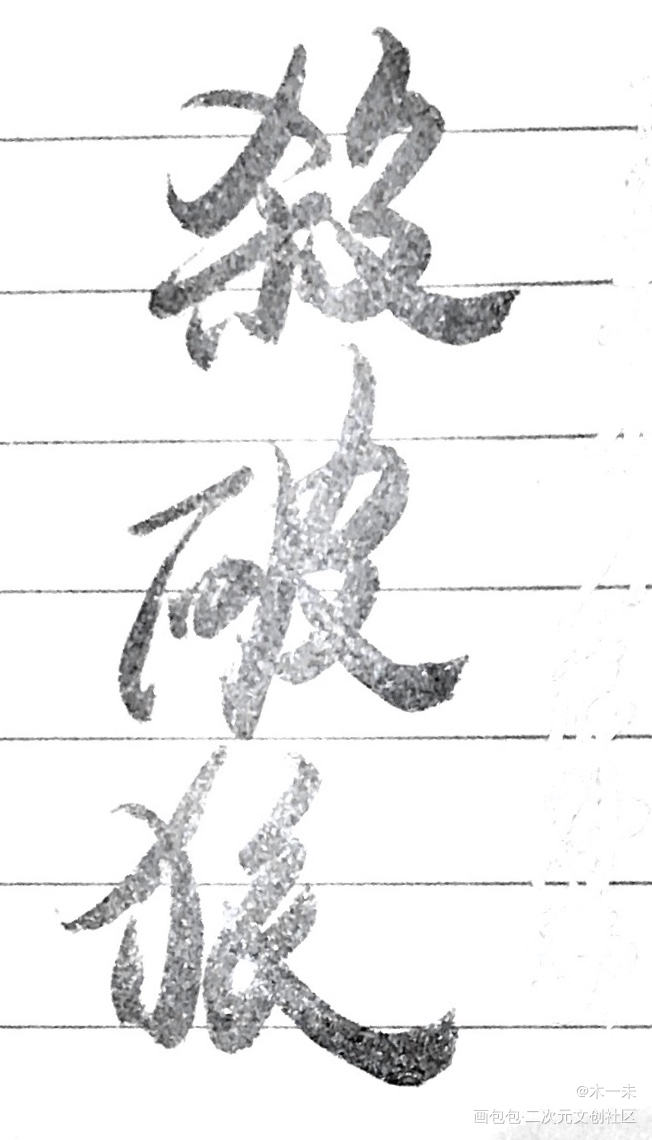 殺
破
狼
@木一未
画包包·二次元文创社区